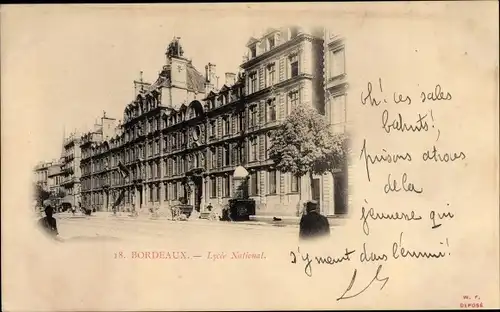 oh! ces sales
bahuts!
prisons atroces
de la
jeunesse qui
s'y meurt dans l'ennui!
18. BORDEAUX. — Lycée National.
W. F.
DÉPOSÉ